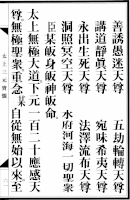 善誘愚迷天尊　五劫輪轉天尊
講道靜真天尊　希夷天尊
永出生死天尊　法澤流布天尊
洞照冥空天尊　水府河海一切聖衆
臣某飯身飯神飯命
太上無極大道下元一百二十應感天
尊無極聖衆重念某自從無始以來至
太上三元